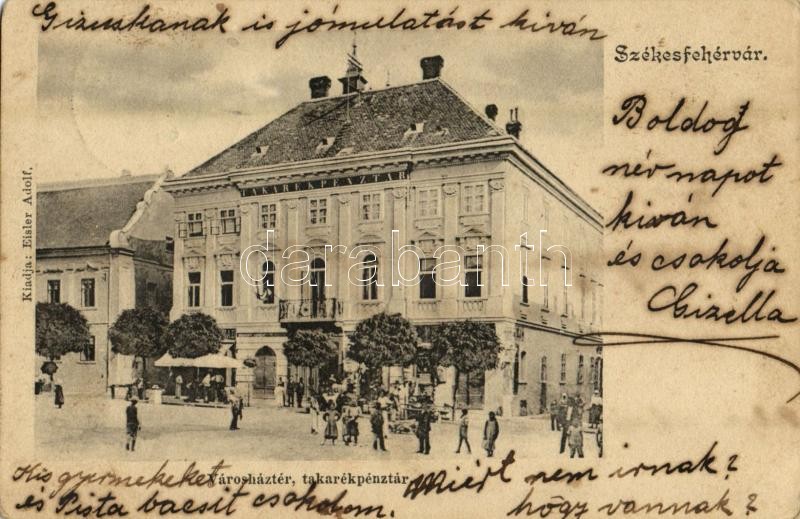 Gizuskanak is jó mulatást kiván
Székesfehérvár.
Boldog
név napot
kiván
és csakolja
Gizella
Kiadja: Eisler Adolf.
TAKARÉKPÉNZTÁR
darabanth.com
Városháztér, takarékpénztár
Kis gyermekeket
és Pista bacsit csokolom.
Miért nem irnak?
hogy vannak?